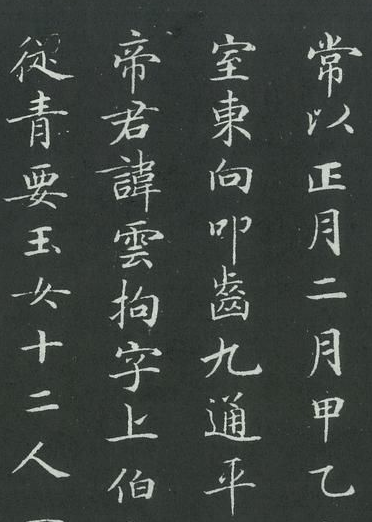 常以正月二月甲乙
室東向叩齒九通平
帝君諱雲拘字上伯
從青要玉女十二人